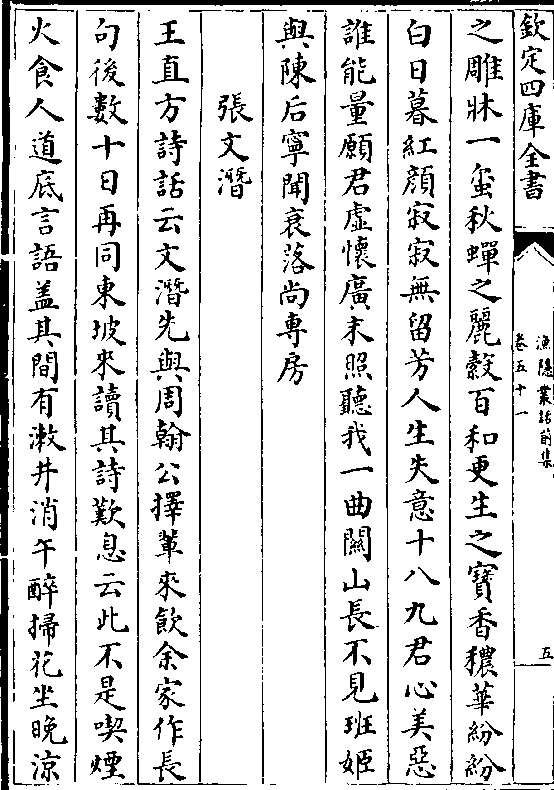 欽定四庫全書
漁隱叢話前集
卷五十一
五
之雕牀一蛍秋蟬之麗縠百和更生之寶香穠華紛紛
白日暮紅顔寂寂無留芳人生失意十八九君心美惡
誰能量願君虛懷廣末照聽我一曲關山長不見班姬
與陳后寧聞衰落尚專房
張文潛
王直方詩話云文潛先與周翰公擇軰來飲余家作長
句後數十日再同東坡來讀其詩歎息云此不是喫煙
火食人道底言語葢其間有漱井消午醉掃花坐晚涼